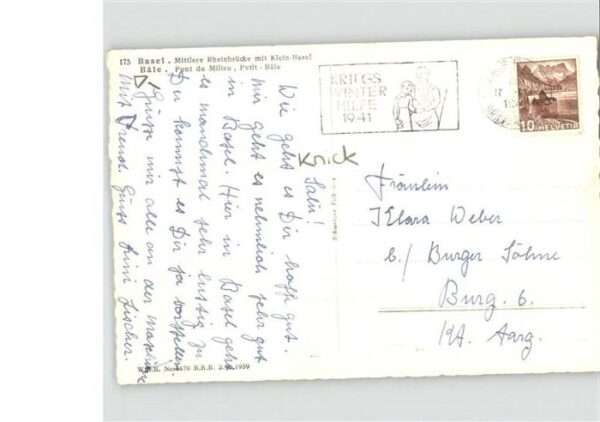 175 Basel. Mittlere Rheinbrücke mit Klein-Basel
Bâle. Pont du Milieu, Petit-Bâle
KRIEGS
WINTER
HILFE
1941
10 HELVETIA
Knick
Salü!
Wie geht es Dir hoffe gut.
mir geht es nehmlich sehr gut
in Basel. Hier in Basel geht
es manchmal sehr lustig zu
Du kannst es Dir ja vorstellen.
Grüsse mir alle an der Maschine
Mit Freund. Gruss Fischer.
Fräulein
Klara Weber
b./ Burger Söhne
Burg. 6.
Kt. Aarg.
B.R.B. 3.10.1939